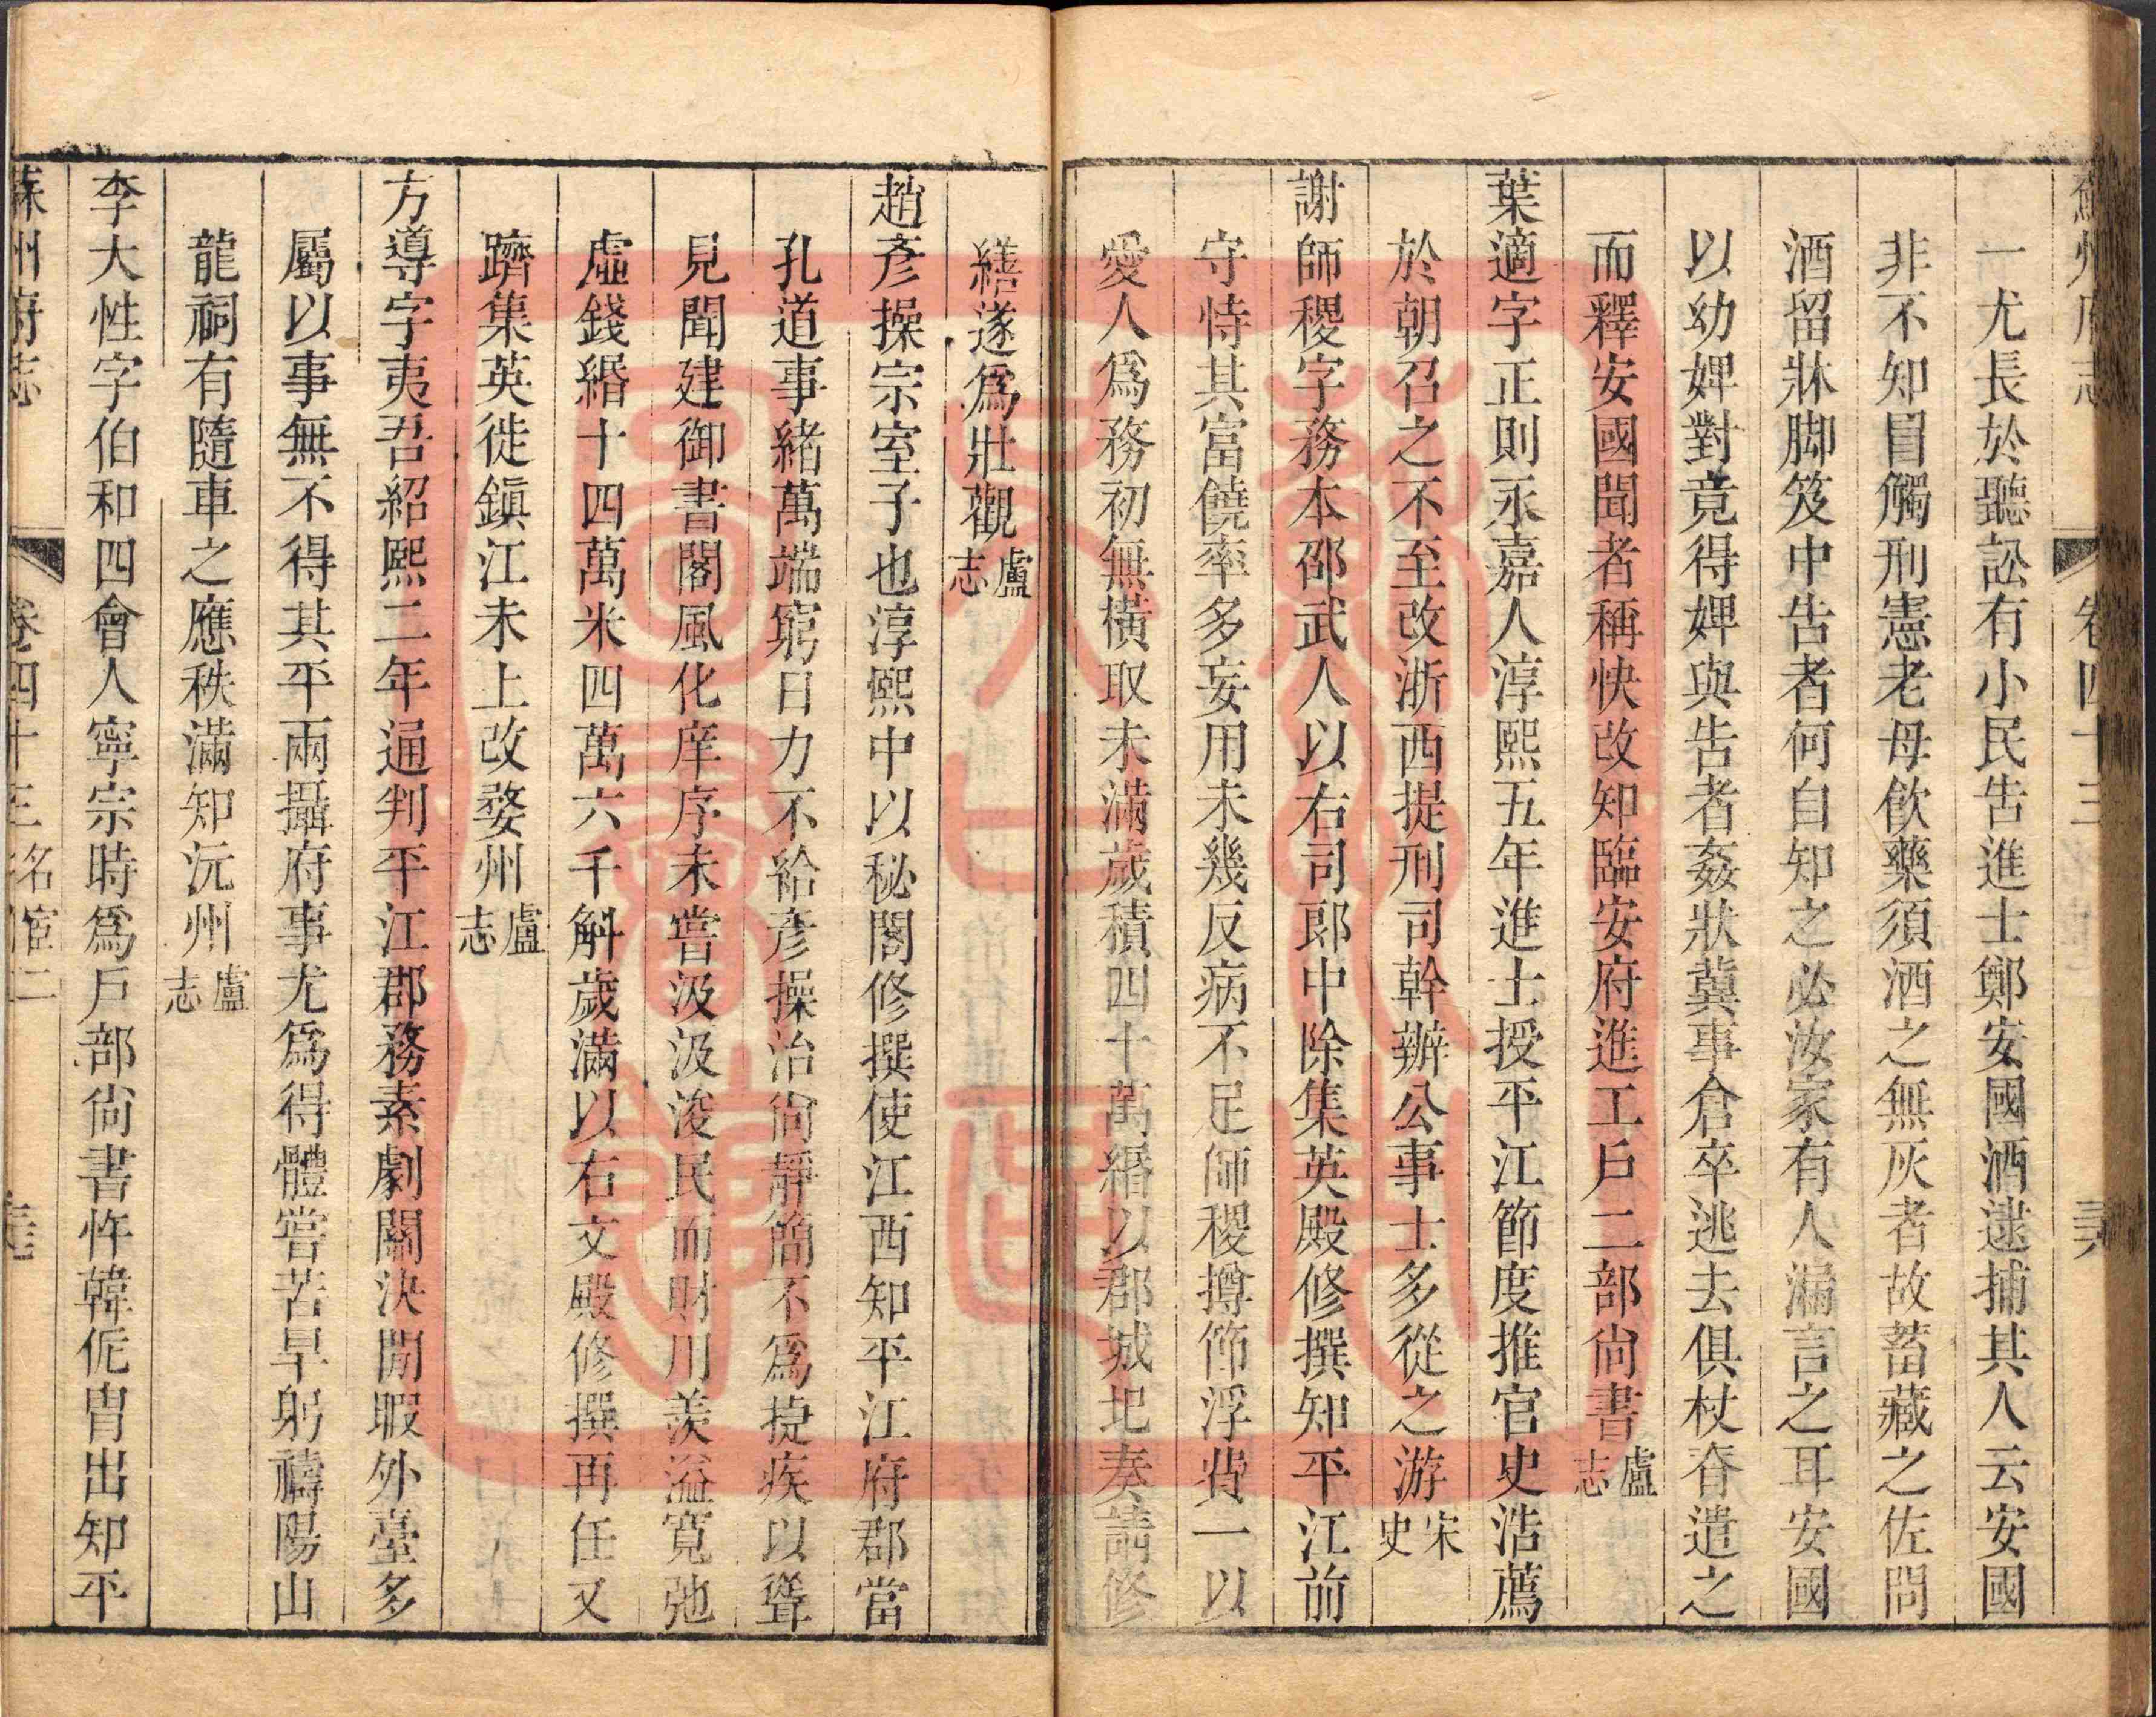 蘇州府志 卷四十三
一尤長於聽訟有小民告進士鄭安國酒逮捕其人云安國
非不知冒觸刑憲老母飲藥須酒之無灰者故蓄藏之佐問
酒留牀脚笈中告者何自知之必汝家有人漏言之耳安國
以幼婢對竟得婢與告者姦狀冀事倉卒逃去俱杖脊遣之
而釋安國聞者稱快改知臨安府進工戶二部尙書盧志
葉適字正則永嘉人淳熙五年進士授平江節度推官史浩薦
於朝召之不至改浙西提刑司幹辦公事士多從之游宋史
謝師稷字務本邵武人以右司郎中除集英殿修撰知平江前
守恃其富饒率多妄用未幾反病不足師稷撙節浮費一以
愛人爲務初無橫取未滿歲積四十萬緡以郡城圮奏請修
繕遂爲壯觀盧志
趙彥操宗室子也淳熙中以秘閣修撰使江西知平江府郡當
孔道事緖萬端窮日力不給彥操治尙靜簡不爲捷疾以聳
見聞建御書閣風化庠序未嘗汲汲浚民而財用羨溢寬弛
虛錢緡十四萬米四萬六千斛歲滿以右文殿修撰再任又
躋集英徙鎭江未上改婺州盧志
方導字夷吾紹熙二年通判平江郡務素劇關決閒暇外臺多
屬以事無不得其平兩攝府事尤爲得體嘗苦旱躬禱陽山
龍祠有隨車之應秩滿知沅州盧志
李大性字伯和四會人寧宗時爲戶部尙書忤韓侂冑出知平
蘇州府志 卷四十三名宦二